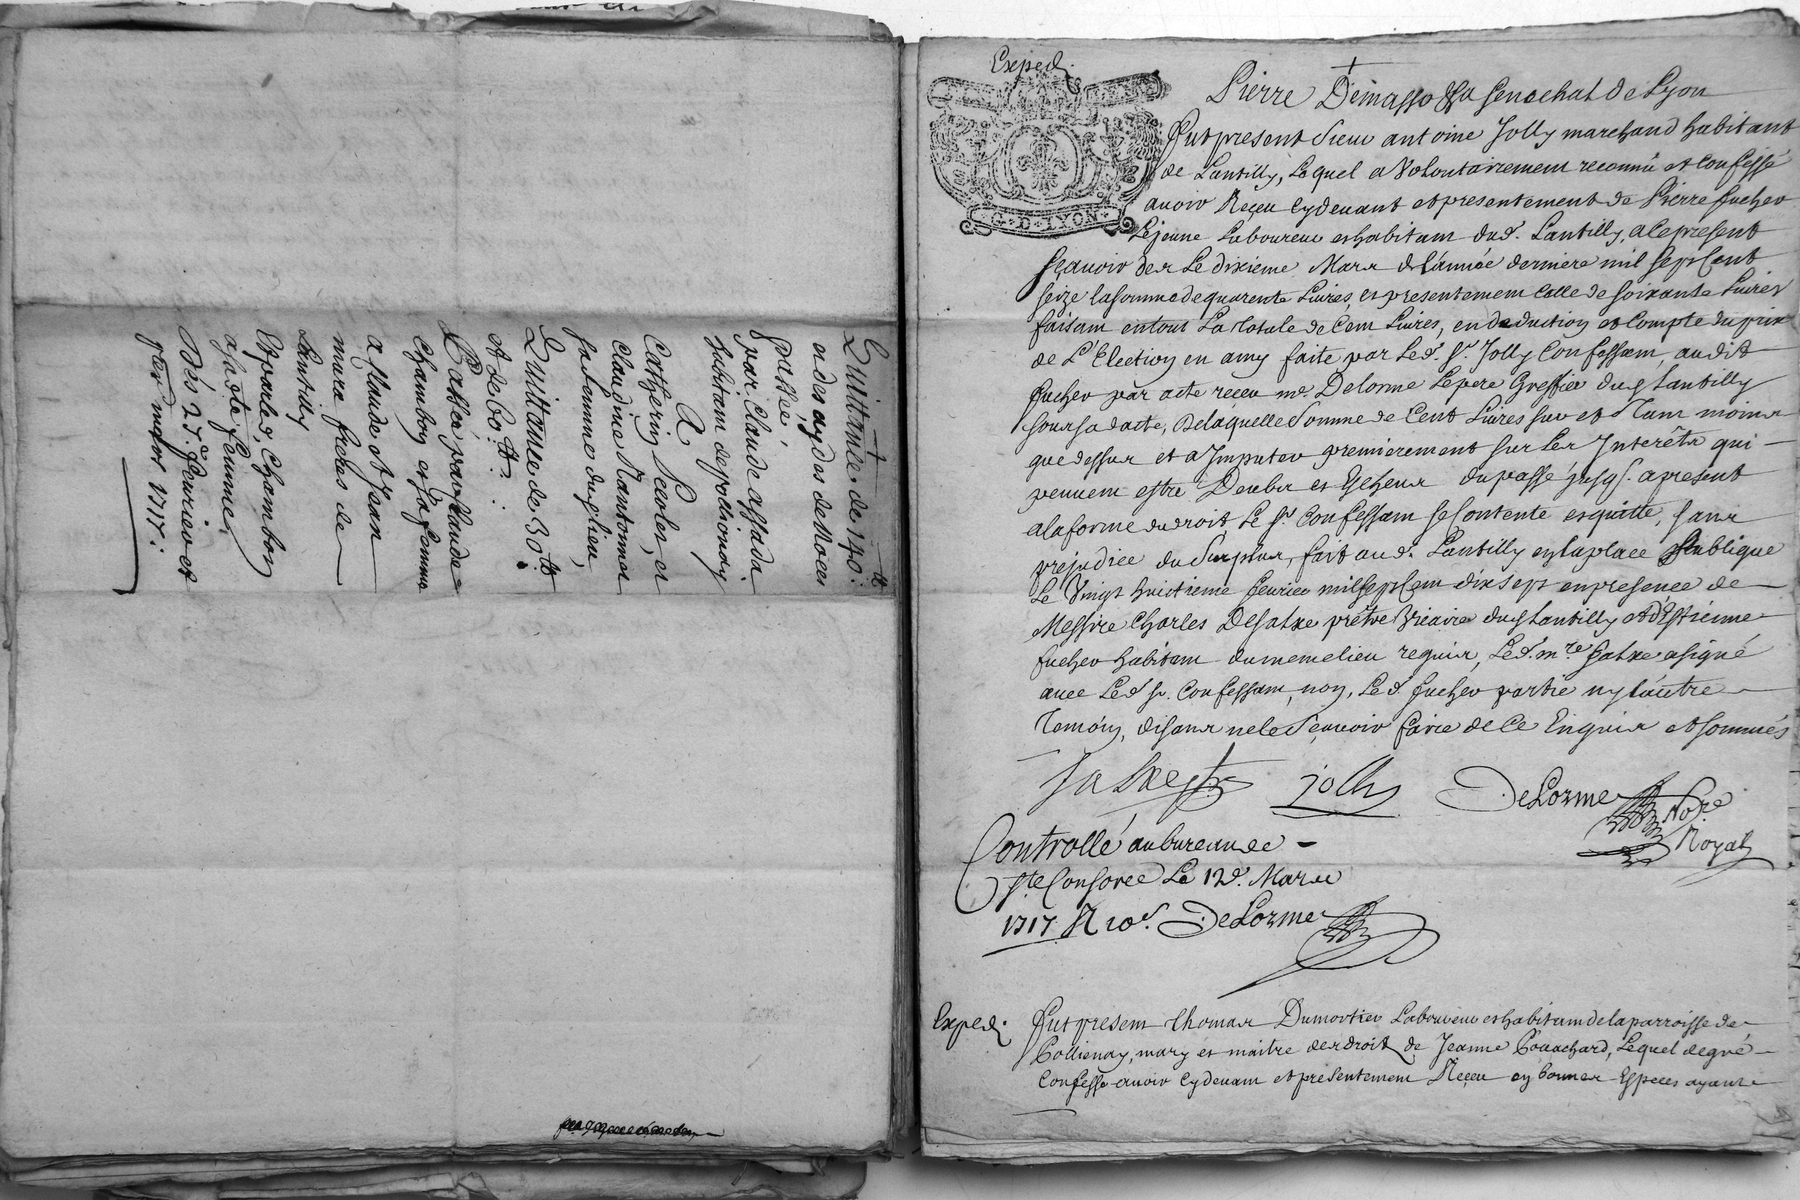 Quittance de 140.tt
en des aydes de Noces
passée,
par Claude assada
habitant de
A
Catherin et
Claudine
sa femme dud. lieu,
Quittance de 30.tt
et de 60.tt
Passé par Claude
Chambon et sa femme
a Claude et Jean
mura freres de
Lantilly
Et par led. Chambon
a ladte femme
Dés 27.e feurier et
per mars 1717:
Exped.
Pierre Demasso senechal de Lyon
G. D. LYON
Fut present Sieur antoine Jolly marchand habitant
de Lantilly, Lequel a Volontairement reconnu et Confessé
auoir Reçeu Cydeuant et presentement de Pierre fucher
Lejeune Laboureur et habitant dud. Lantilly, a ce present
sçauoir des Le dixieme Mars de l'année derniere mil sept Cent
seize la somme de quarente Liures, et presentement Celle de soixante Liures
faisant en tout La totale de Cent Liures, en deduction et Compte du prix
de L'Election en amy faite par Led. Sr. Jolly Confessant, audit
fucher par acte receu me. Delorme Lepere Greffier dud. Lantilly
sous sa datte, De laquelle Somme de Cent Liures sur et tant moins
que dessus et a Imputer premierement sur Les Interêts qui
peuuent estre Deubs et Echeus du passé jusq. a present
a la forme du droit Le Sr. Confessant se Contente et quitte, sans
prejudice du Surplus, fait aud. Lantilly en la place Publique
Le Vingt huictieme feurier mil sept Cent dix sept en presence de
Messire Charles Desatxe prêtre Vicaire dud. Lantilly et d'Estienne
fucher habitant du meme lieu requis, Led. mre Satxe a signé
auec Led. Sr. Confessant, non, Led. fucher partie ny l'autre
Temoin, disans ne le Sçauoir faire de Ce Enquis et sommés
Jolly DeLorme Nore
Royal
Controllé au bureau de
Ste Consorce Le 12e. Mars
1717 R 10s. DeLorme
Exped. Fut present Thomas Dumortier Laboureur et habitant de la parroisse de
Pollienay, mary et maitre des droits de Jeanne Lequel de gré
Confesse auoir Cydeuant et presentement Reçeu en bonnes Especes ayant